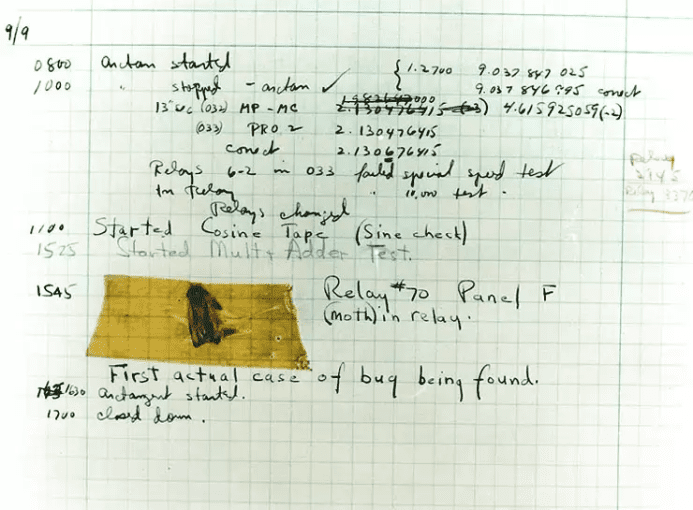 9/9
0800 Antan started
1000 " stopped - antan ✓ { 1.2700 9.037 847 025
9.037 846 995 correct
13" uc (032) MP - MC 2.130476415 (-3) 4.615925059(-2)
(033) PRO 2 2.130476415
correct 2.130676415
Relays 6-2 in 033 failed special speed test
In Relay " 10.000 test .
Relays changed
1100 Started Cosine Tape (Sine check)
1525 Started Mult+ Adder Test.
1545 Relay #70 Panel F
(moth) in relay.
First actual case of bug being found.
1630 antangent started.
1700 closed down.
Relay
2145
Relay 3370